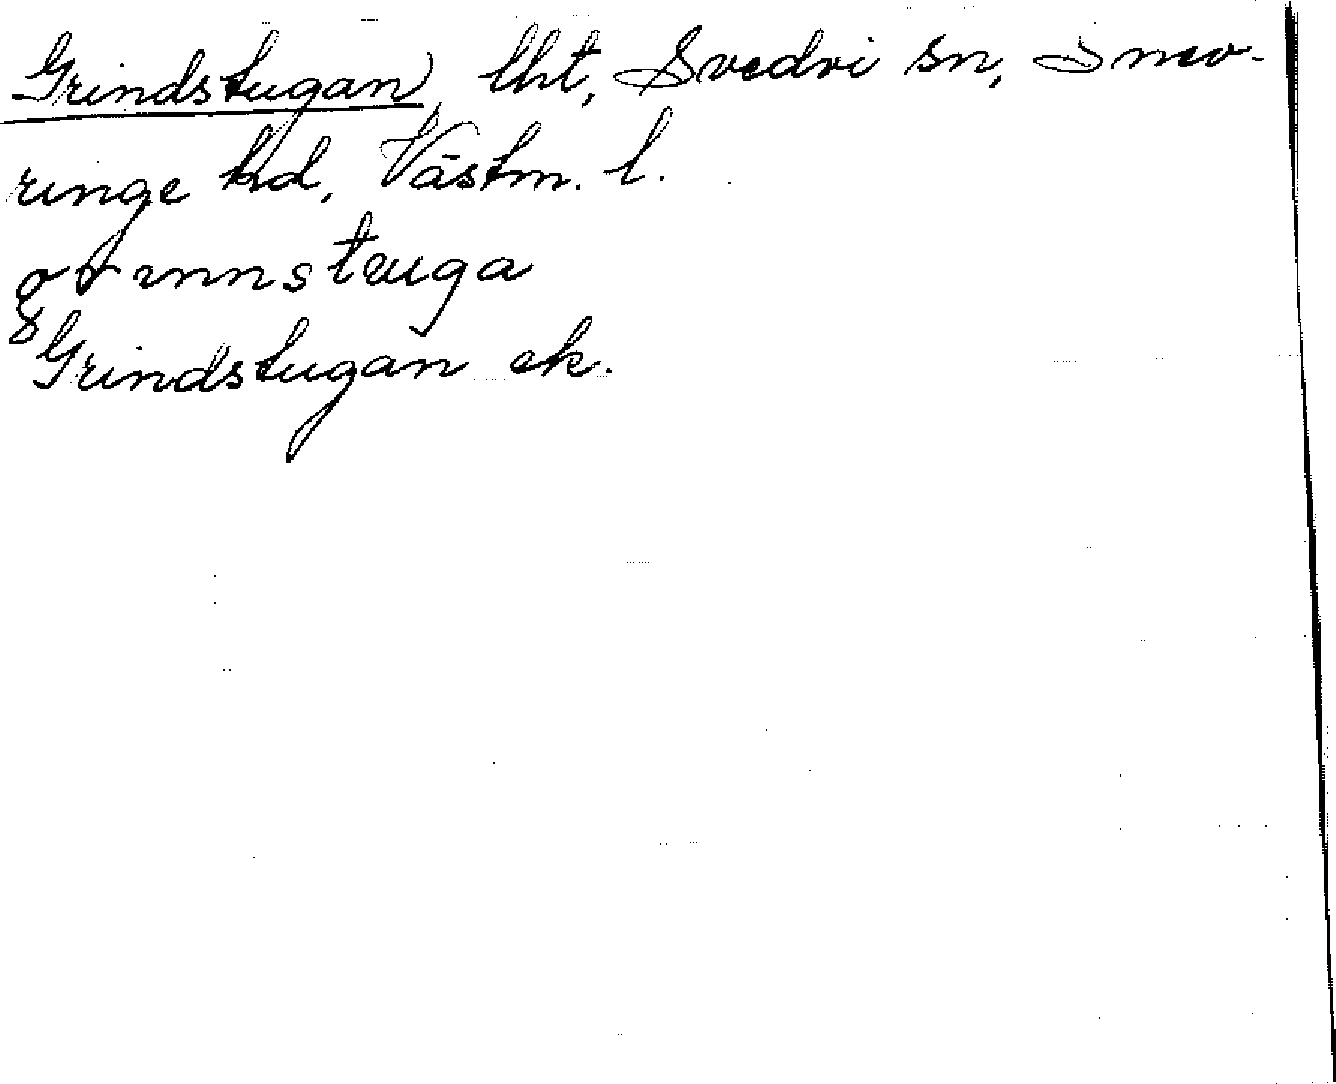 Grindstugan, lht, Svedvi sn, Snev-
ringe hd, Västm. l.
Grindstugan ek.